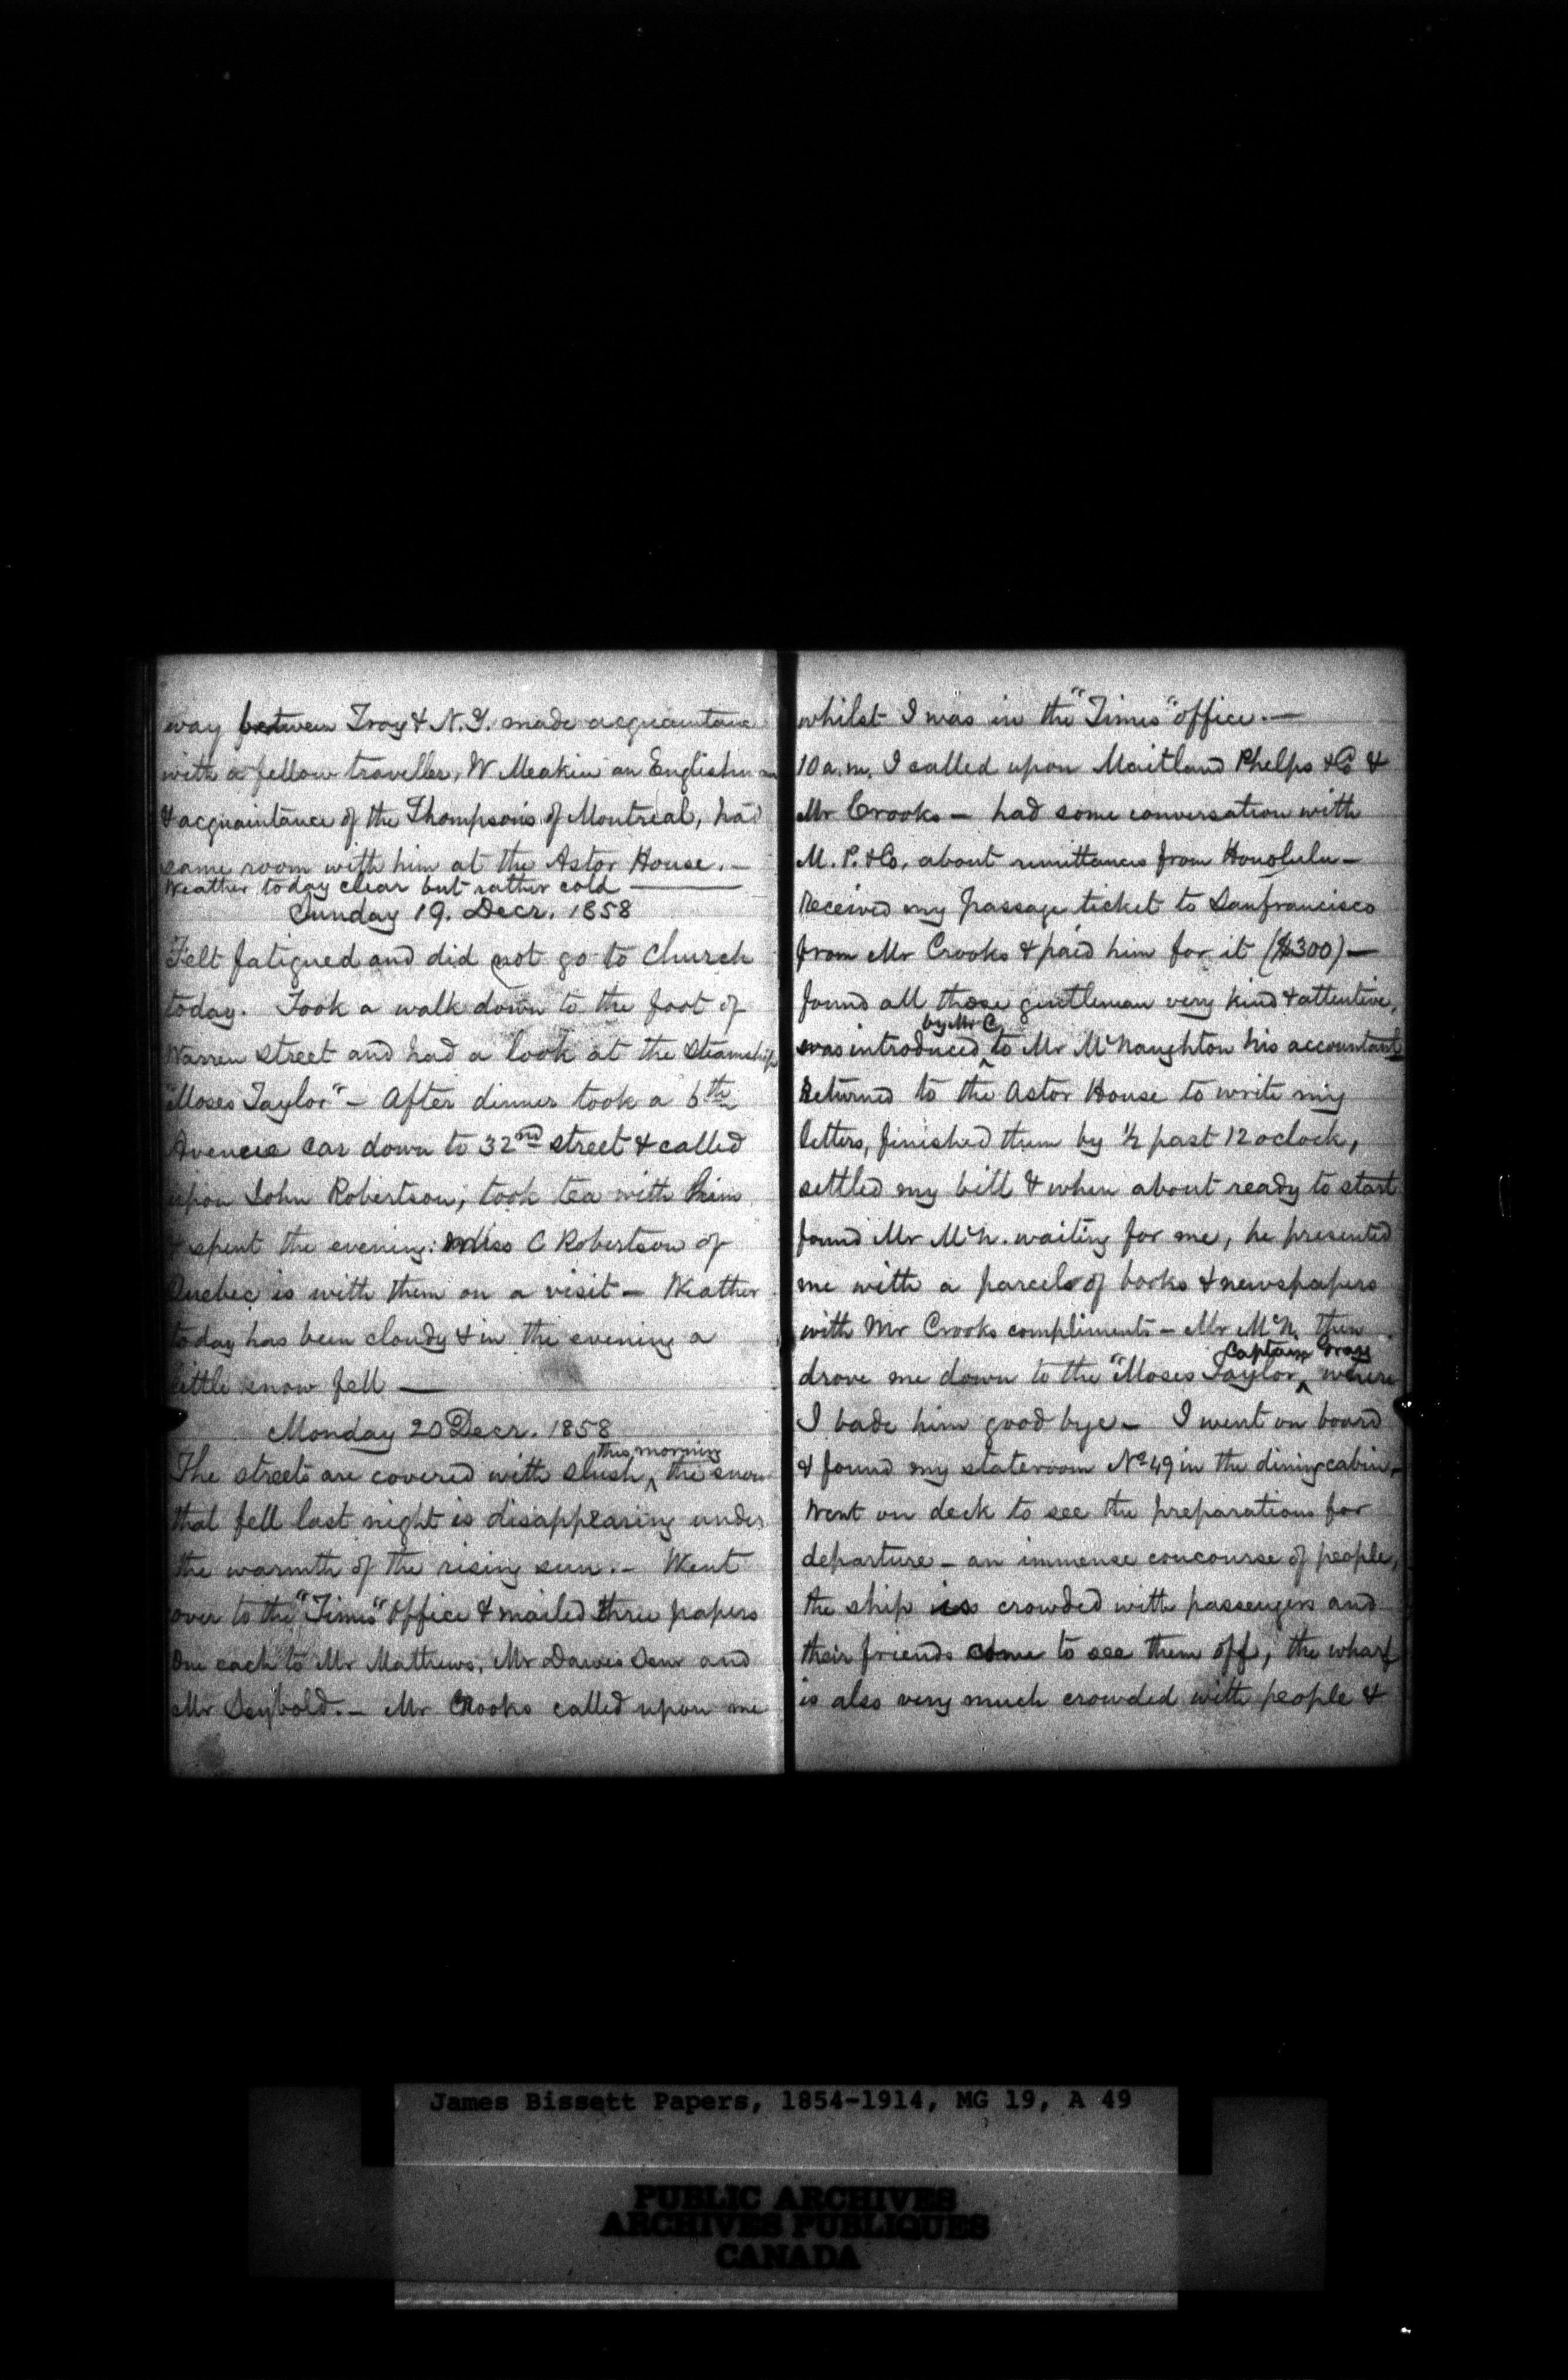 way between Troy & N.Y. made acquaintance
with a fellow traveller, W Meakin an Englishman
& acquaintance of the Thompson's of Montreal, had
same room with him at the Astor House. —
Weather today clear but rather cold —
Sunday 19. Decr. 1858
Felt fatigued and did not go to Church
today. Took a walk down to the foot of
Warren street and had a look at the Steamship
"Moses Taylor" — After dinner took a 6th
Avenue car down to 32nd street & called
upon John Robertson, took tea with him
& spent the evening: Miss C Robertson of
Quebec is with them on a visit — Weather
today has been cloudy & in the evening a
little snow fell —
Monday 20 Decr. 1858
this morning
The streets are covered with slush, ^ the snow
that fell last night is disappearing under
the warmth of the rising sun. — Went
over to the "Times" Office & mailed three papers
One each to Mr Mathews, Mr Davis Senr and
Mr Seybold. — Mr Crooks called upon me
whilst I was in the "Times" office. —
10 a.m. I called upon Maitland Phelps & Co &
Mr Crooks — had some conversation with
M. P. & Co. about remittances from Honolulu —
Received my passage ticket to Sanfrancisco
from Mr Crooks & paid him for it ($300) —
found all those gentleman very kind & attentive,
by Mr C.
was introduced ^ to Mr McNaughton his accountant
Returned to the Astor House to write my
letters, finished them by ½ past 12 oclock,
settled my bill & when about ready to start
found Mr McN. waiting for me, he presented
me with a parcel of books & newspapers
with Mr Crooks compliments — Mr McN. then
Captain Gray
drove me down to the "Moses Taylor, ^ where
I bade him good bye — I went on board
& found my stateroom No 49 in the dining cabin, —
Went on deck to see the preparations for
departure — an immense concourse of people,
the ship is crowded with passengers and
their friends come to see them off, the wharf
is also very much crowded with people &
James Bissett Papers, 1854-1914, MG 19, A 49
PUBLIC ARCHIVES
ARCHIVES PUBLIQUES
CANADA